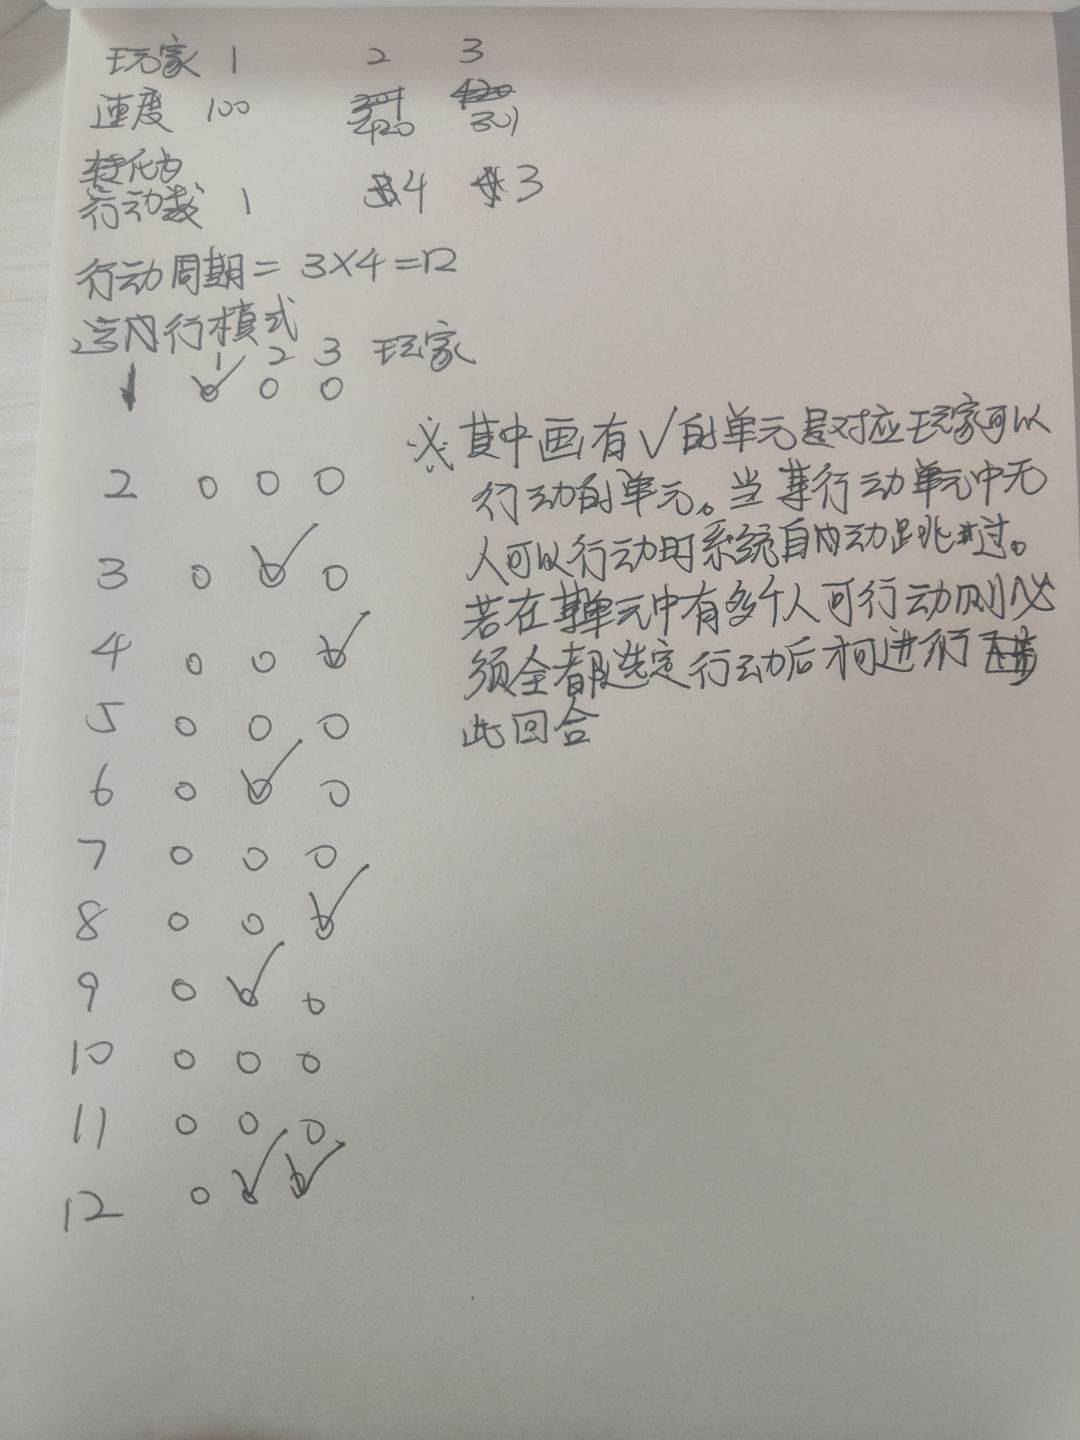 玩家 1 2 3
速度 100 420 301
转化为
行动数 1 4 3
行动周期 = 3×4=12
运行模式
1 2 3 玩家
1 ✓ 0 0
2 0 0 0
3 0 ✓ 0
4 0 0 ✓
5 0 0 0
6 0 ✓ 0
7 0 0 0
8 0 0 ✓
9 0 ✓ 0
10 0 0 0
11 0 0 0
12 0 ✓ ✓
※ 其中画有√的单元是对应玩家可以
行动的单元。当某行动单元中无
人可以行动时系统自动跳过。
若在某单元中有多个人可行动则必
须全都选定行动后才可进行
此回合